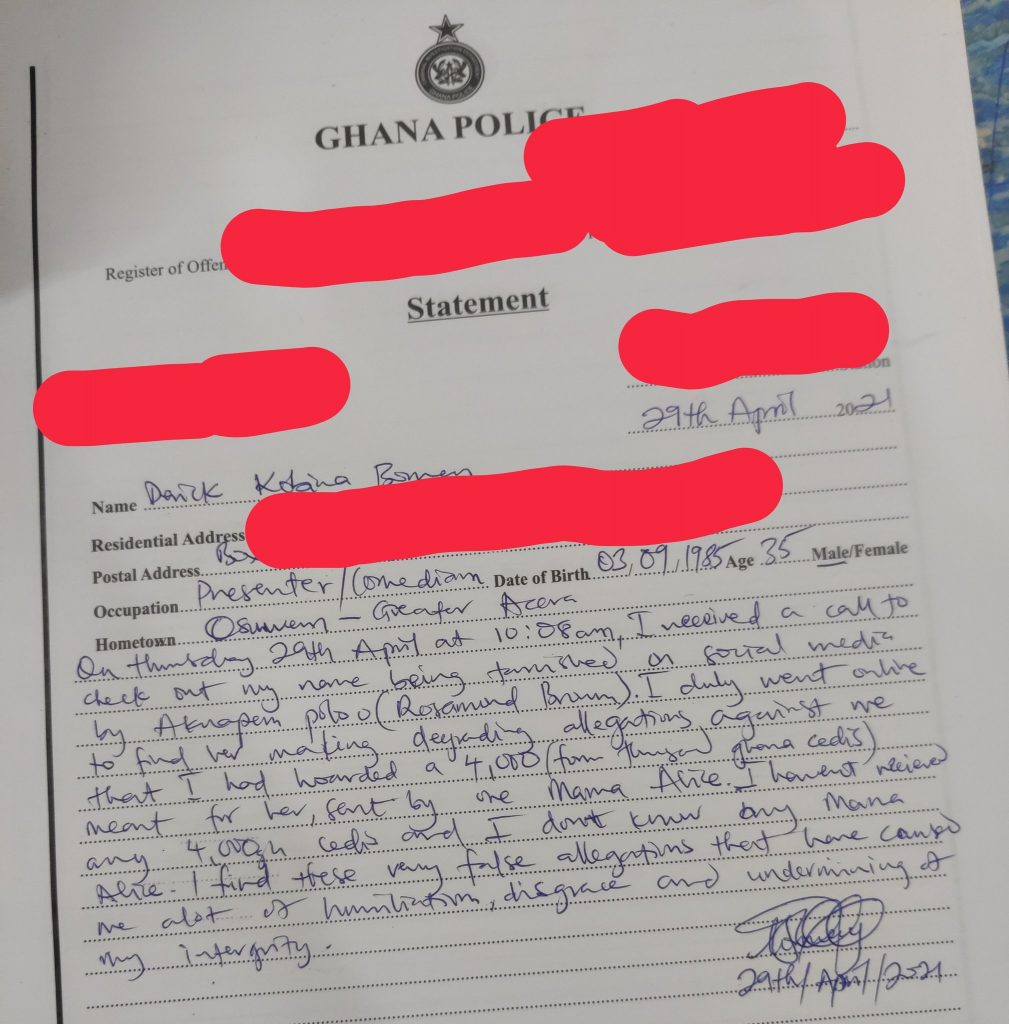 GHANA POLICE
Register of Offen
Statement
29th April 2021
Name Derick Kobina Bonney
Residential Address
Postal Address Box
Occupation Presenter/Comedian Date of Birth 03,09,1985 Age 35 Male/Female
Hometown Osuwem - Greater Accra
On thursday 29th April at 10:08am, I received a call to
check out my name being tarnished on social media
by Akuapem poloo (Rosamund Brown). I duly went online
to find her making degrading allegations against me
that I had hoarded a 4,000 (four thousand ghana cedis)
meant for her, sent by one Mama Alice. I havent recieved
any 4,000gh cedis and I don't know any Mama
Alice. I find these very false allegations that have caused
me alot of humiliation, disgrace and undermining of
my intergrity.
29th/April/2021